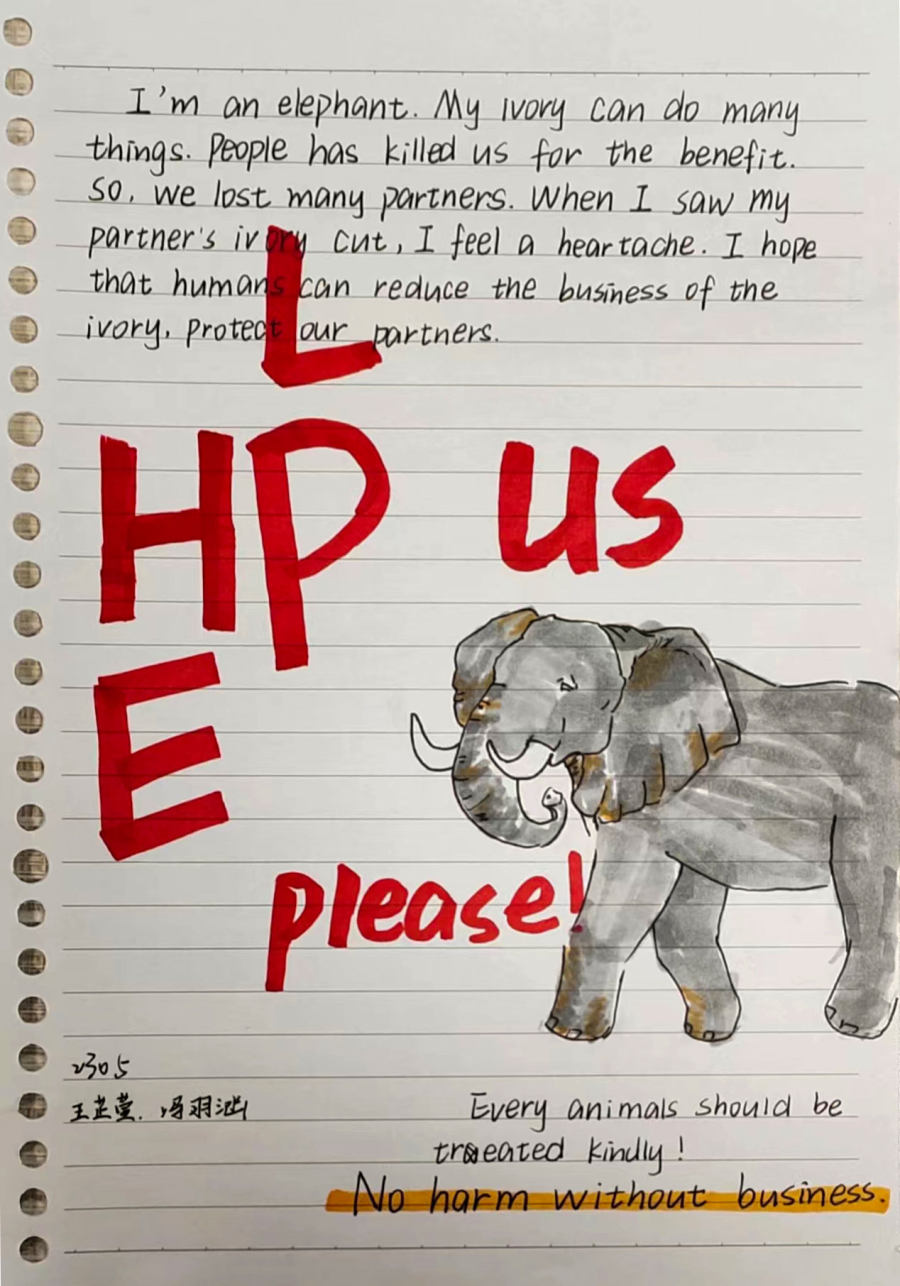 I'm an elephant. My ivory can do many
things. People has killed us for the benefit.
So, we lost many partners. When I saw my
partner's ivory cut, I feel a heartache. I hope
that humans can reduce the business of the
ivory, protect our partners.
HELP us
please!
2305
王芷萱. 冯羽
Every animals should be
treated kindly!
No harm without business.